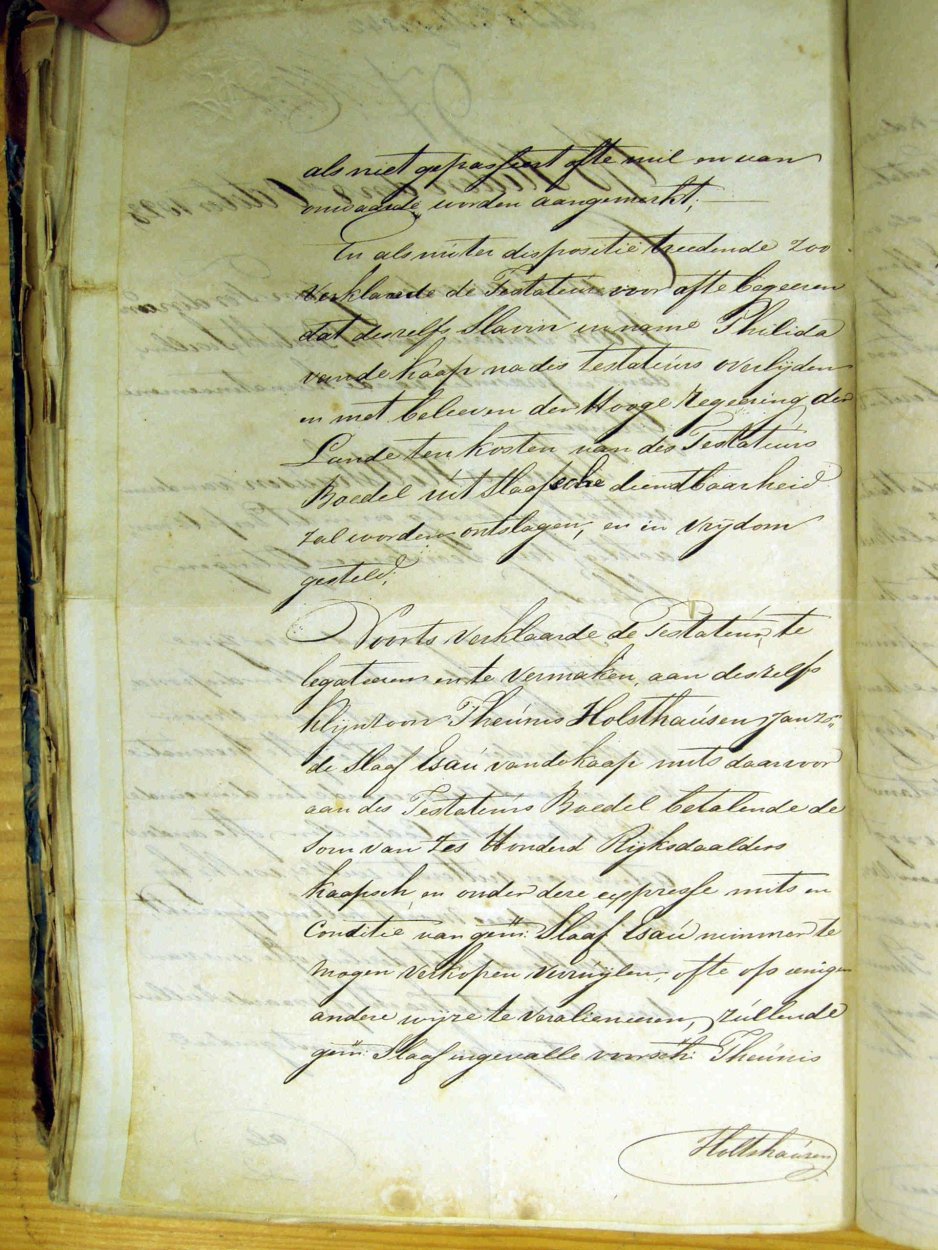 als niet gepasseert ofte nul en van
onwaarde worden aangemerkt,
En als nú ter dispositie treedende zoo
verklaarde de Testateúr voor afte begeeren
dat deszelfs Slavin in name Philida
van de kaap na des testateúrs overlijden
en met believen der Hooge regeering der
Lande ten kosten van des Testateúrs
Boedel uit Slaafsche dienstbaarheid
zal worden ontslagen, en in vrijdom
gesteld.
Voorts verklaarde de Testateúr, te
legateeren en te vermaken, aan deszelfs
klijnzoon Theúnis Holsthaúsen Janzn
de Slaaf Esaú van de kaap mits daarvoor
aan des Testateúrs Boedel betalende de
som van tes Honderd Rijksdaalders
kaapsch, en onder deze expresse mits en
Conditie van gem: Slaaf Esaú nimmer te
mogen verkopen verruijlen, ofte op eenigen
andere wijze te veralieneeren, zúllende
gem: Slaaf ingevalle voorsch: Theúnis
Holtshaúsen